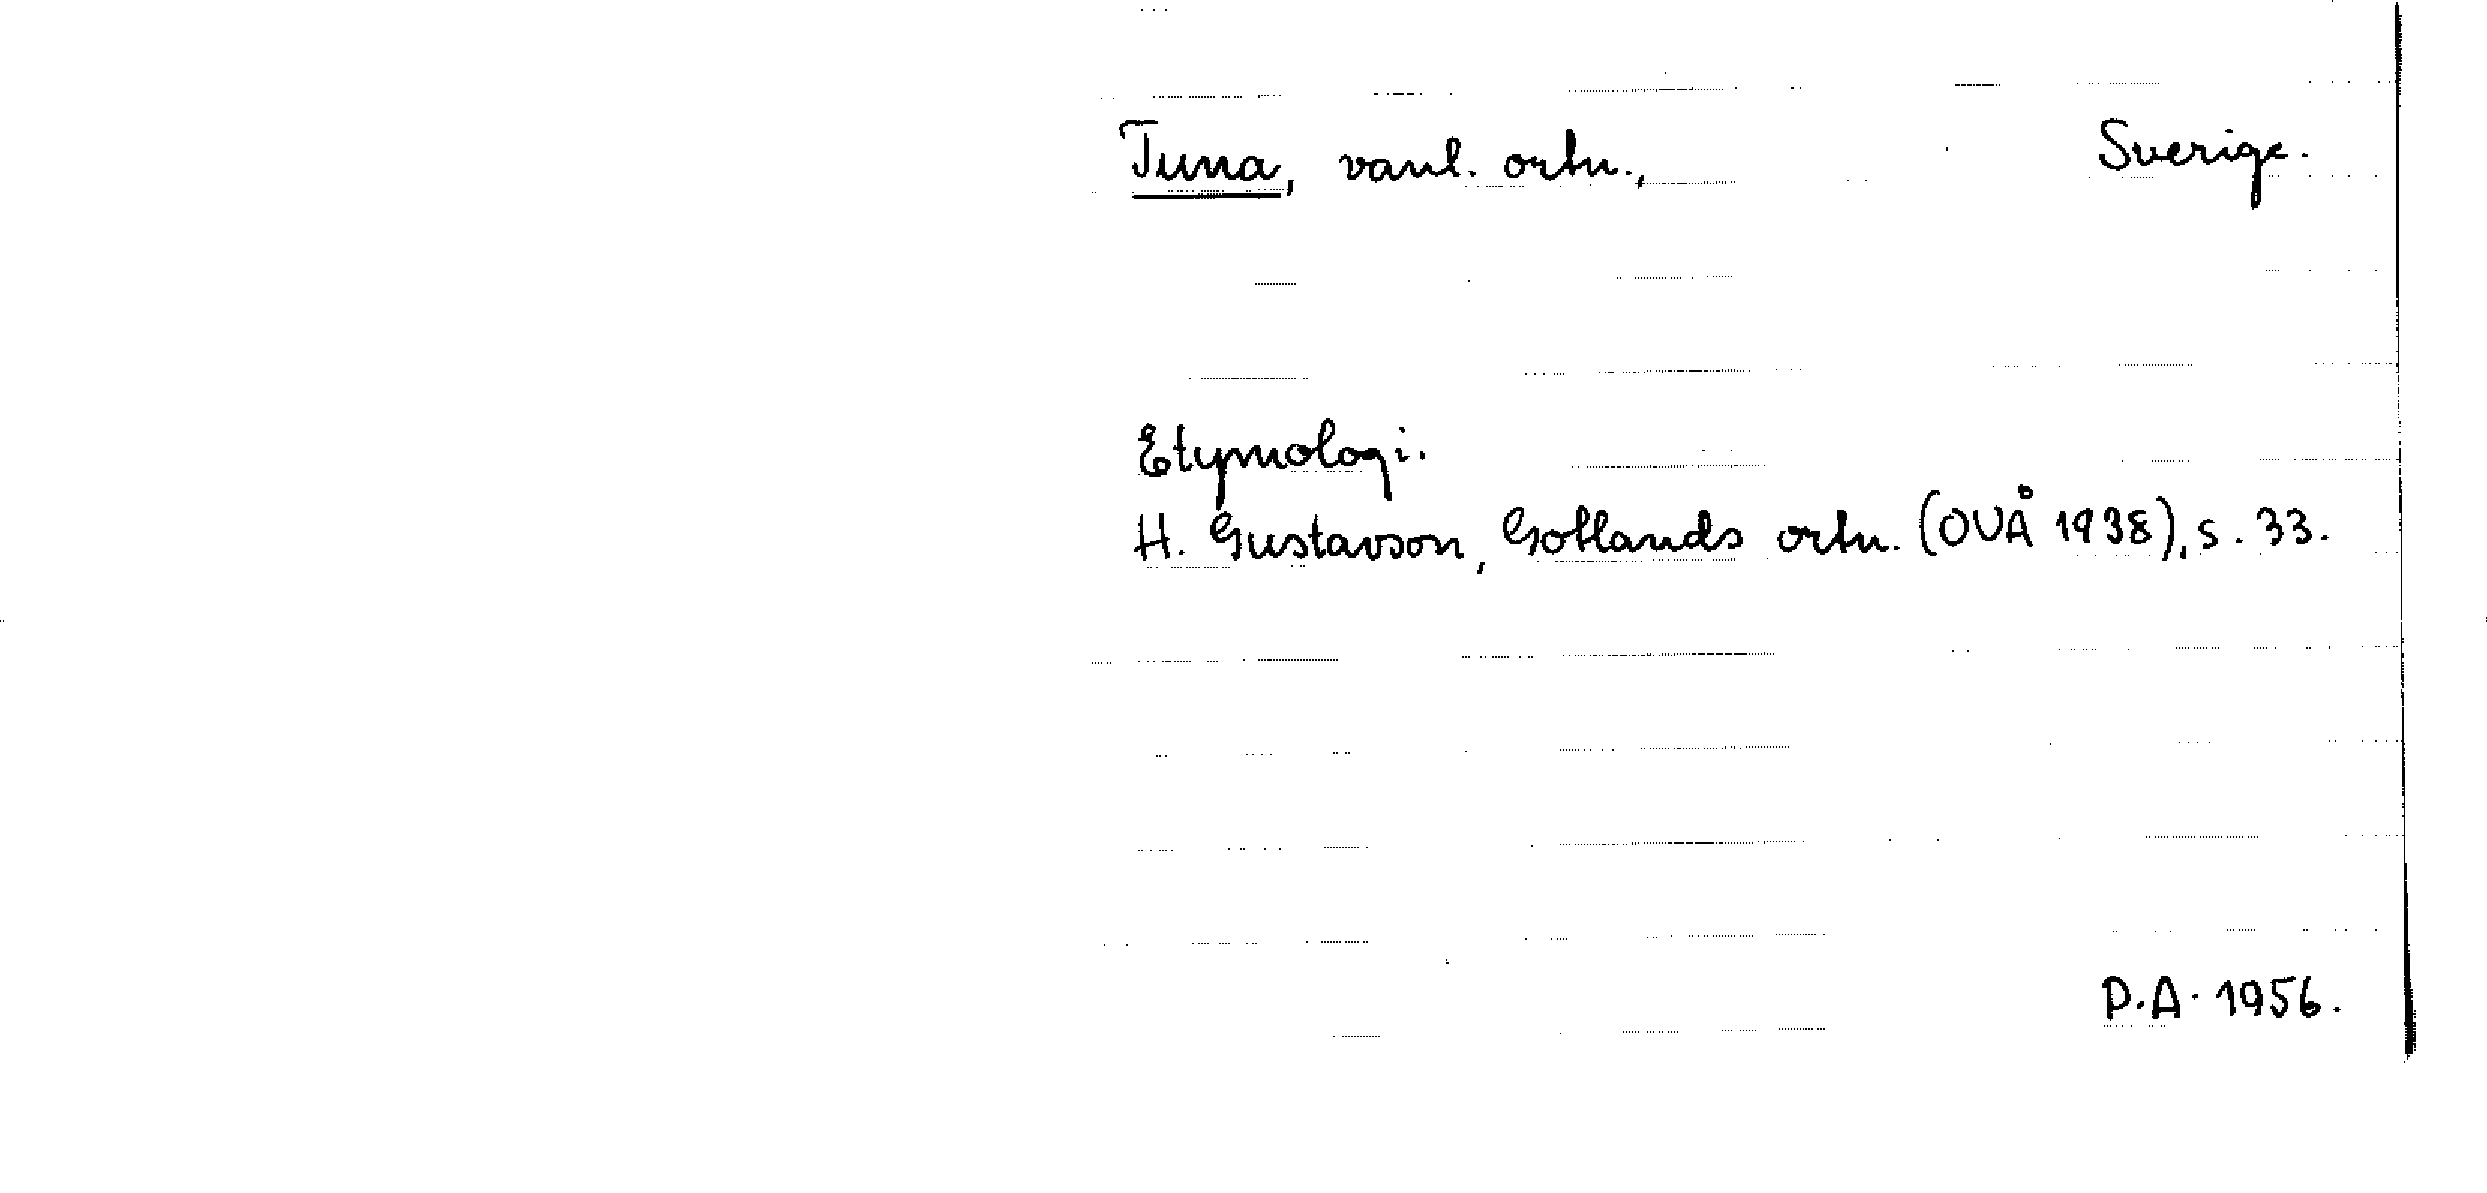 Tuna, vanl. ortn., Sverige.
Etymologi.
H. Gustavson, Gotlands ortn. (OUÅ 1938), s. 33.
P.A. 1956.